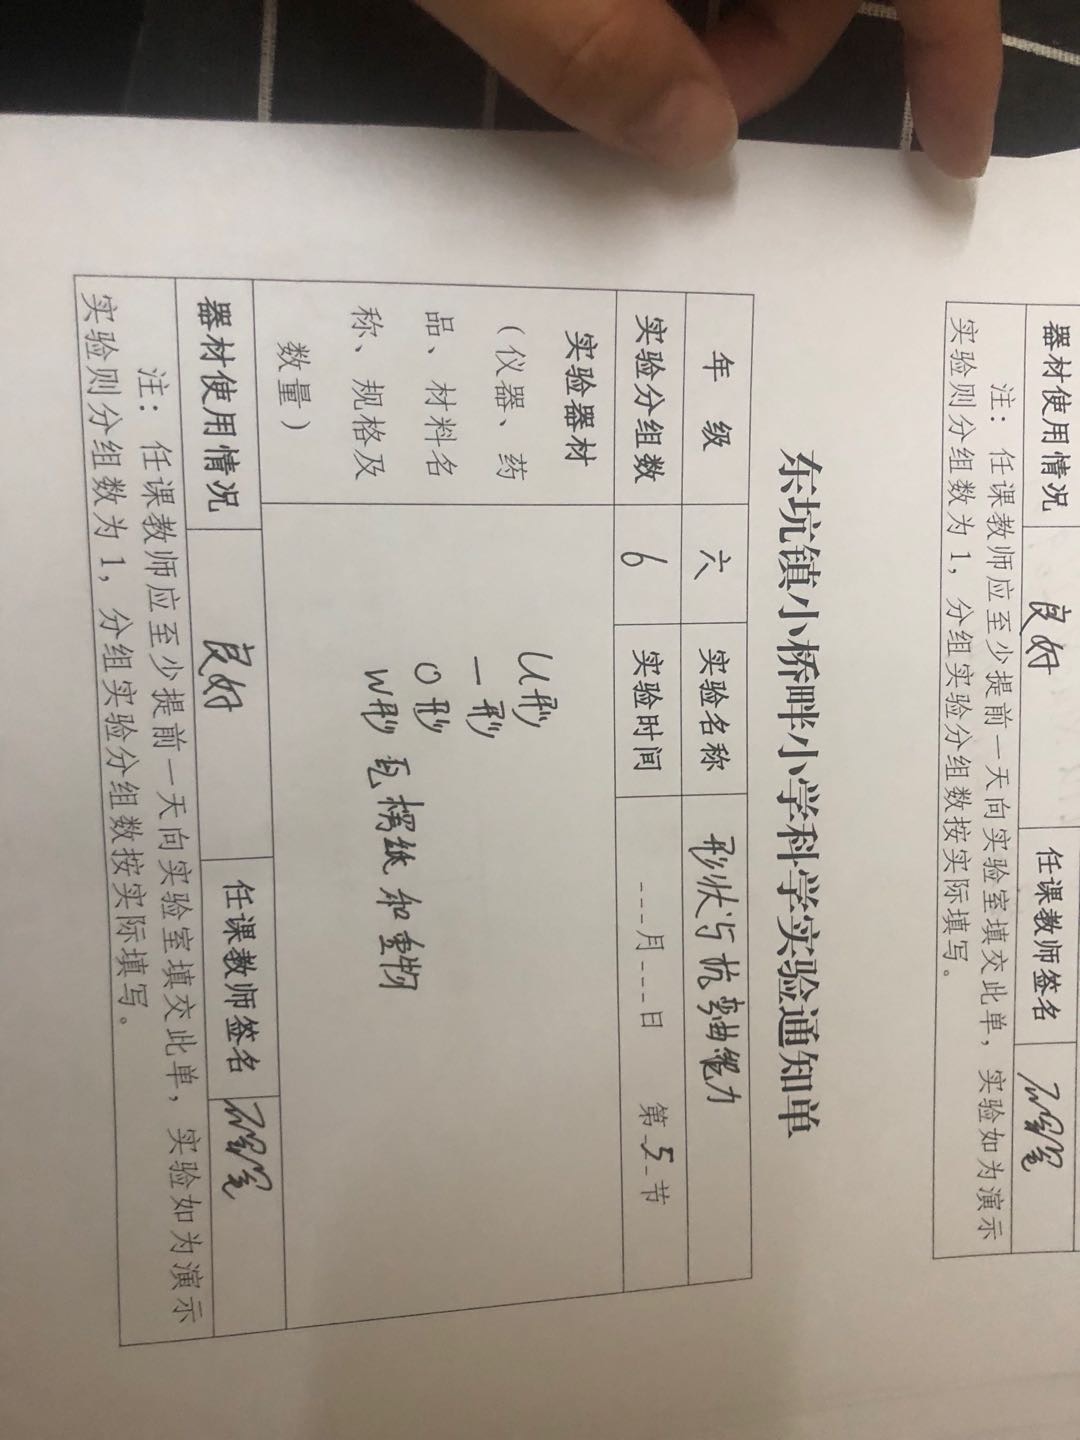 器材使用情况 良好 任课教师签名
注：任课教师应至少提前一天向实验室填交此单，实验如为演示
实验则分组数为1，分组实验分组数按实际填写。
东坑镇小桥畔小学科学实验通知单
年 级 六 实验名称 形状与抗弯曲能力
实验分组数 6 实验时间 ---月---日 第-5-节
实验器材
（仪器、药
品、材料名
称、规格及
数量）
U形
一形
O形
W形 瓦楞纸和重物
器材使用情况 良好 任课教师签名
注：任课教师应至少提前一天向实验室填交此单，实验如为演示
实验则分组数为1，分组实验分组数按实际填写。